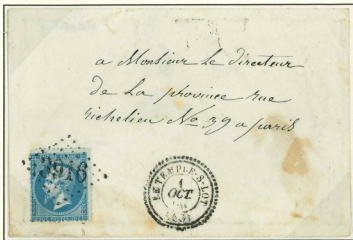 a Monsieur le directeur
de La province rue
richelieu No 39 a paris
3916
LE TEMPLE-S-LOT
1
OCT